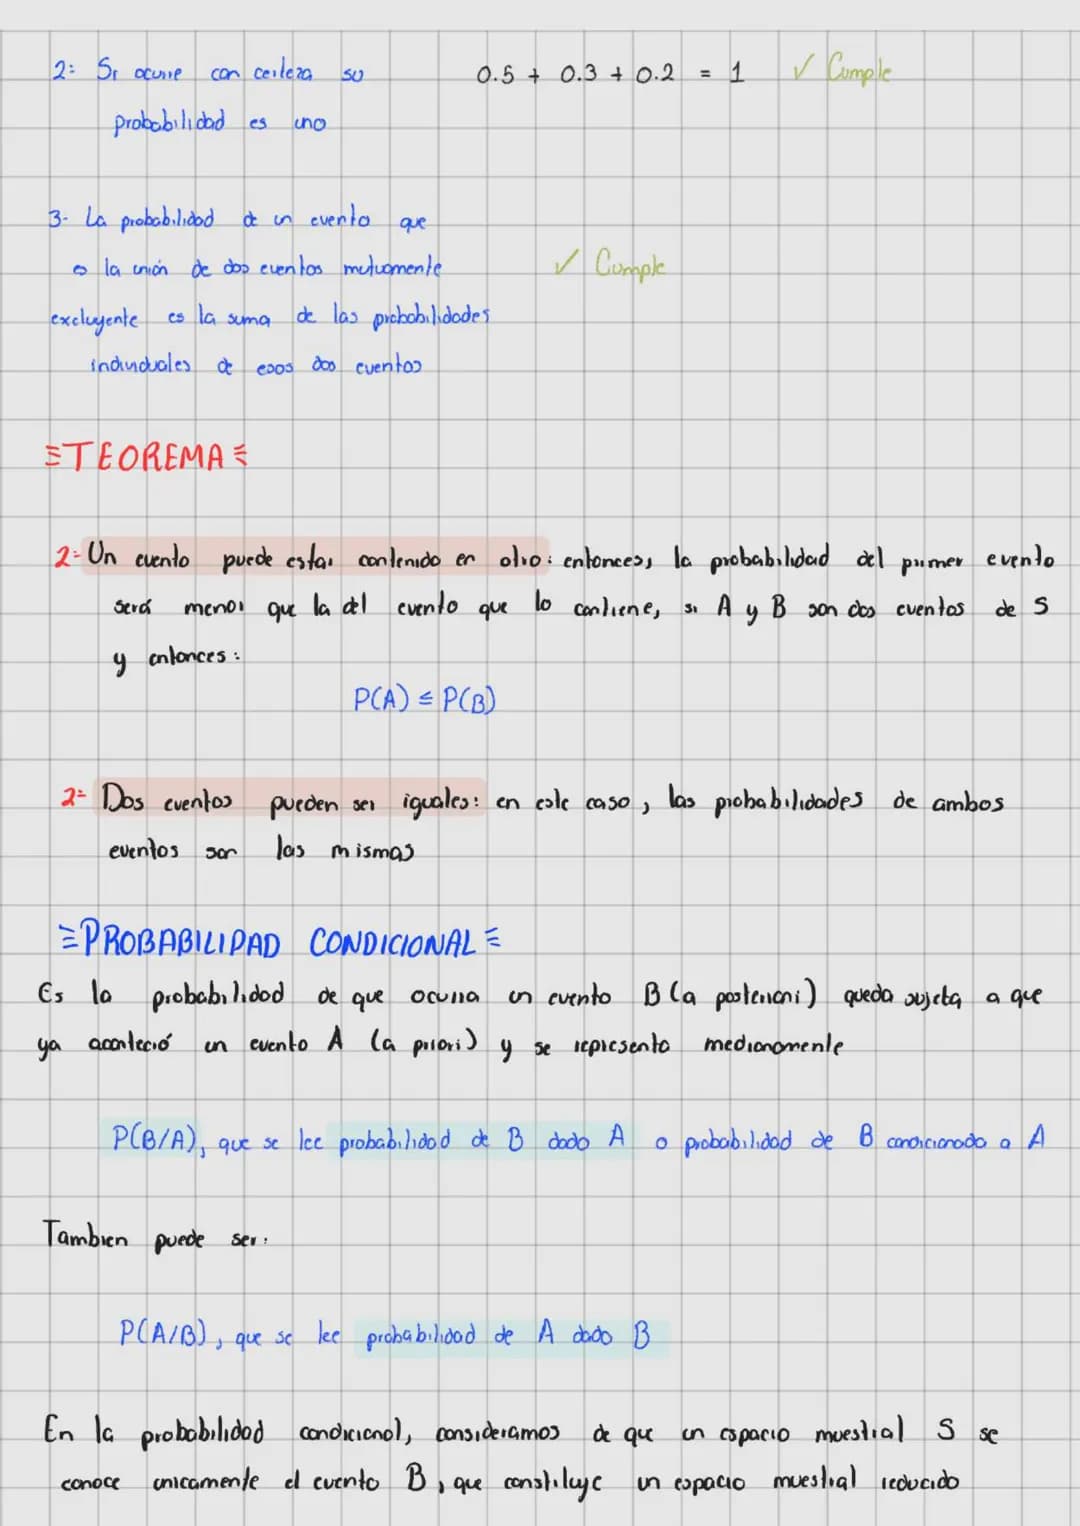 2: Si ocurre con certeza su
probabilidad es uno
0.5 + 0.3 + 0.2 = 1 ✓ Cumple
3- La probabilidad de un evento que
es la unión de dos eventos mutuamente
excluyente es la suma de las probabilidades
individuales de esos dos eventos
✓ Cumple
TEOREMA
2- Un evento puede estar contenido en otro: entonces, la probabilidad del primer evento
será menor que la del evento que lo contiene, si A y B son dos eventos de S
y entonces:
P(A) ≤ P(B)
2- Dos eventos pueden ser iguales: en este caso, las probabilidades de ambos
eventos son las mismas
PROBABILIDAD CONDICIONAL
Es la probabilidad de que ocurra un evento B (a posteriori) queda sujeta a que
ya aconteció un evento A (a priori) y se representa medianamente
P(B/A), que se lee probabilidad de B dado A o probabilidad de B condicionado a A
Tambien puede ser:
P(A/B), que se lee probabilidad de A dado B
En la probabilidad condicional, consideramos de que un espacio muestral S se
conoce unicamente el evento B, que constituye un espacio muestral reducido